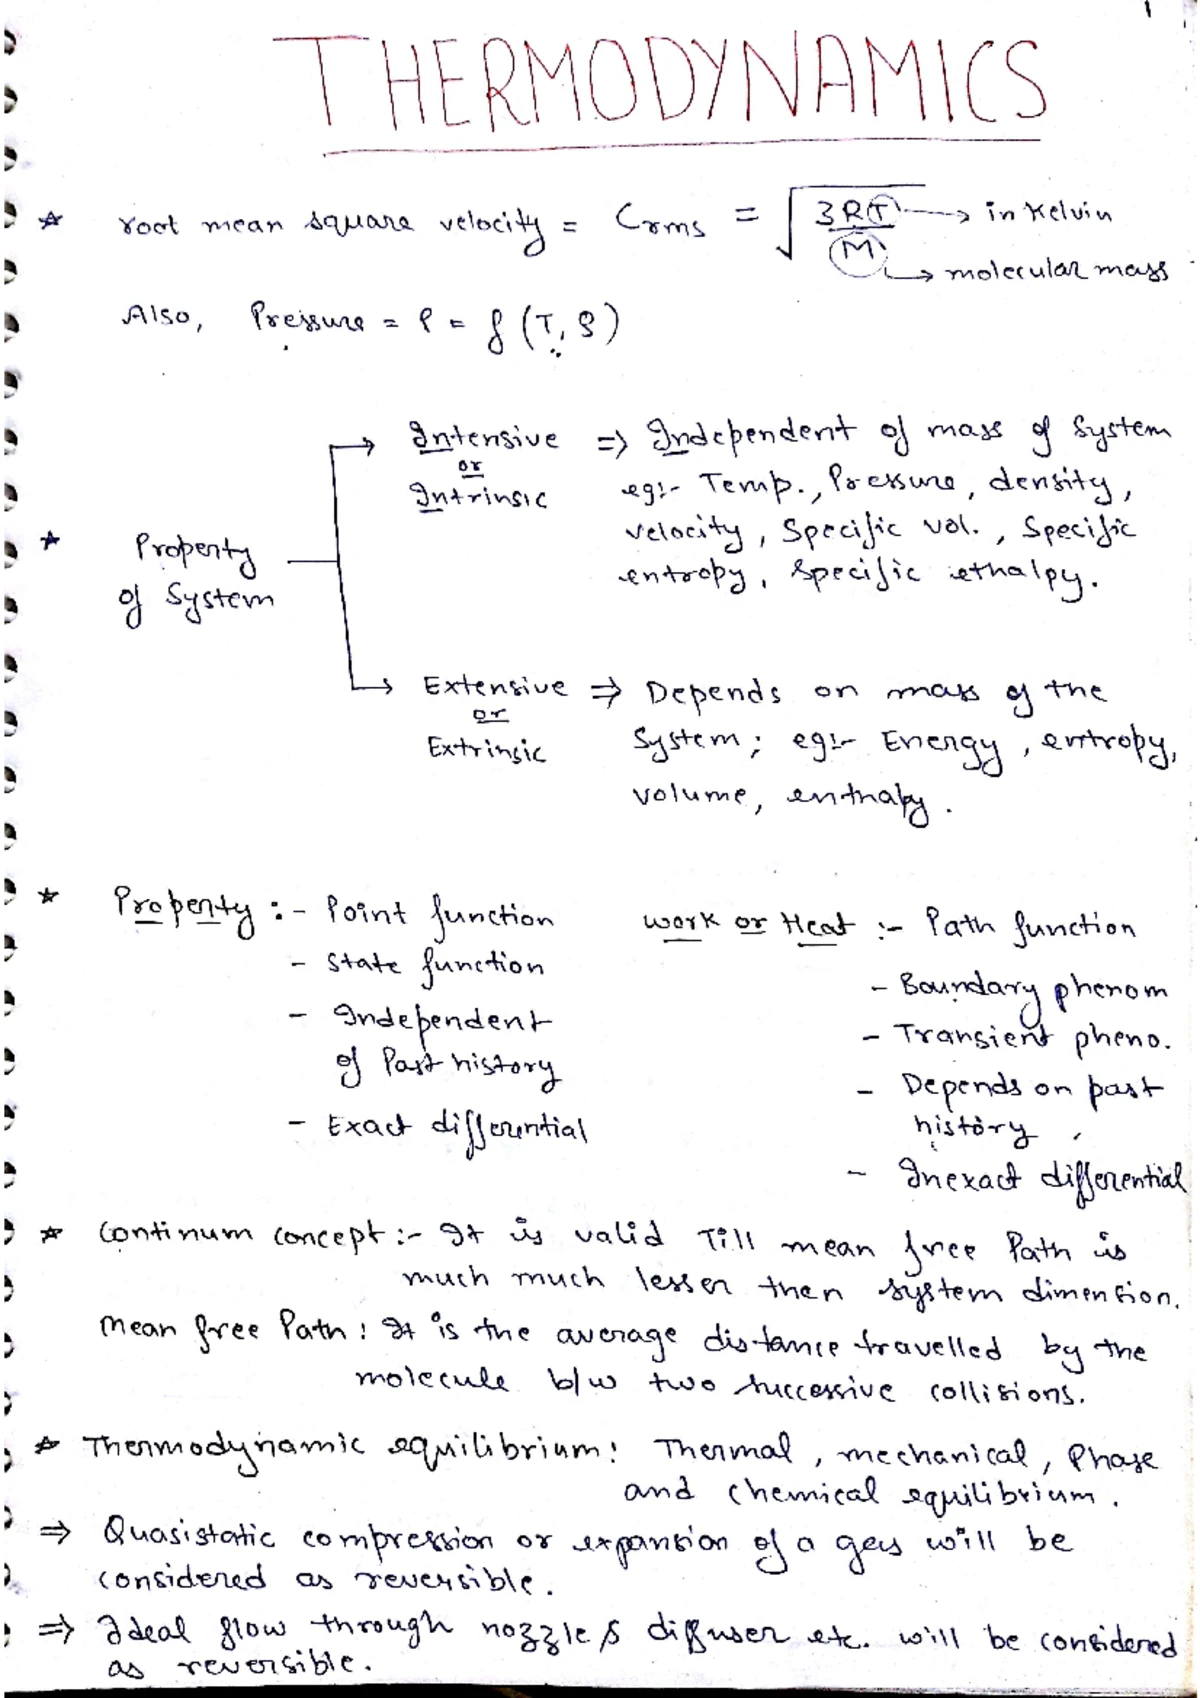 1
THERMODYNAMICS
☆ root mean square velocity = Crms = √(3RT/M) → in Kelvin
→ molecular mass
Also, Pressure = P = f (T, ρ)
Intensive ⇒ Independent of mass of System
or
Intrinsic eg:- Temp., Pressure, density,
velocity, Specific vol., Specific
entropy, specific ethalpy.
☆ Property
of System
Extensive ⇒ Depends on mass of the
or
Extrinsic System; eg:- Energy, entropy,
volume, enthalpy.
☆ Property :- Point function
- State function
- Independent
of Past history
- Exact differential
Work or Heat :- Path function
- Boundary phenom
- Transient pheno.
- Depends on past
history
- Inexact differential
☆ Continum concept :- It is valid Till mean free Path is
much much lesser then system dimension.
Mean free Path : It is the average distance travelled by the
molecule b/w two successive collisions.
☆ Thermodynamic equilibrium : Thermal, mechanical, Phase
and chemical equilibrium.
⇒ Quasistatic compression or expansion of a gas will be
considered as reversible.
⇒ Ideal flow through nozzle & diffuser etc. will be considered
as reversible.